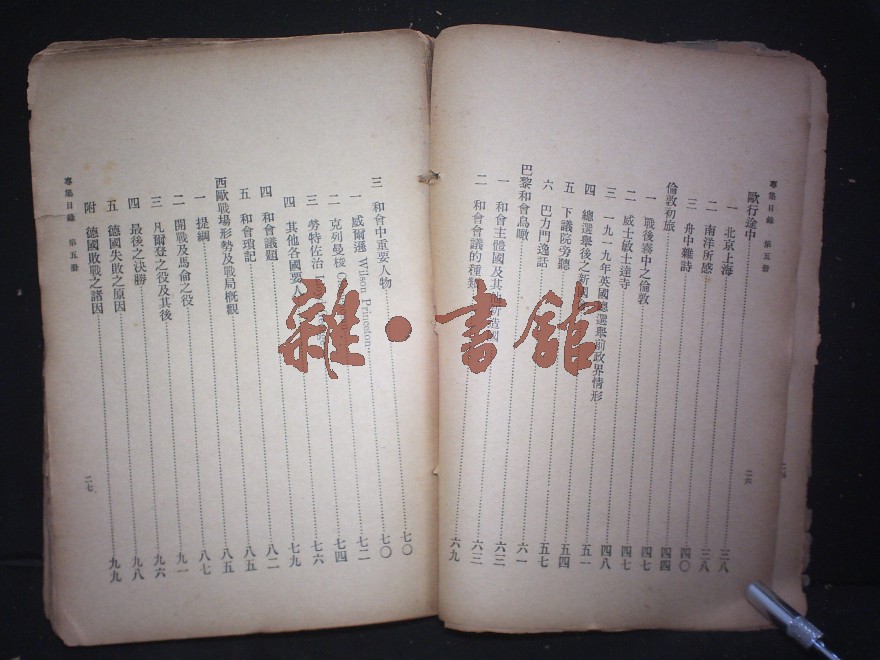 專集目錄 第五册 二六
歐行途中 三八
一 北京上海 三八
二 南洋所感 四〇
三 舟中雜詩 四四
倫敦初旅 四七
一 戰後霧中之倫敦 四七
二 威士敏士達寺 四八
三 一九一九年英國總選舉前政界情形 五一
四 總選舉後之新 五四
五 下議院旁聽 五七
六 巴力門逸話 六一
巴黎和會鳥瞰 六三
一 和會主體國及其他新造國 六三
二 和會會議的種類 六九
三 和會中重要人物 七〇
一 威爾遜 Wilson Princeton 七〇
二 克列曼梭 七二
三 勞特佐治 七四
四 其他各國要人 七六
四 和會議題 七九
五 和會瑣記 八二
西歐戰場形勢及戰局概觀 八五
一 提綱 八五
二 開戰及馬侖之役 八七
三 凡爾登之役及其後 九一
四 最後之決勝 九六
五 德國失敗之原因 九八
附 德國敗戰之諸因 九九
專集目錄 第五册 二七
雜·書館